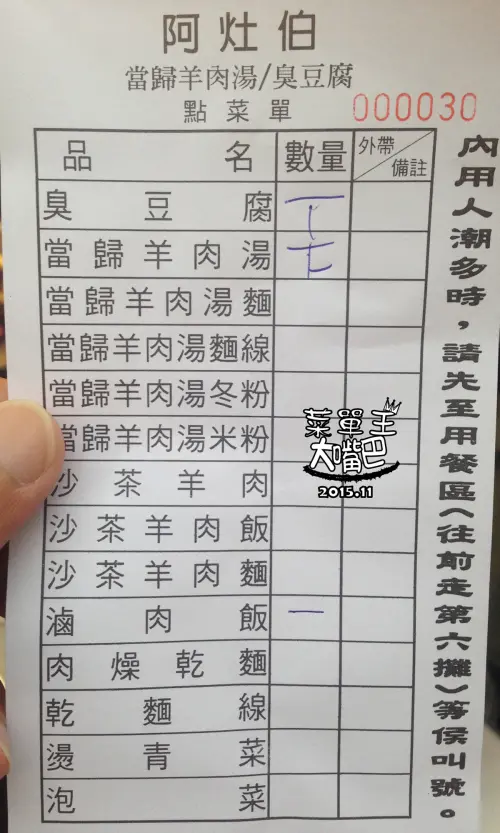 阿灶伯
當歸羊肉湯/臭豆腐
點菜單
000030
品名 數量 外帶/備註
臭豆腐
當歸羊肉湯
當歸羊肉湯麵
當歸羊肉湯麵線
當歸羊肉湯冬粉
當歸羊肉湯米粉
沙茶羊肉
沙茶羊肉飯
沙茶羊肉麵
滷肉飯 一
肉燥乾麵
乾麵線
燙青菜
泡菜
內用人潮多時，請先至用餐區(往前走第六攤)等侯叫號。
菜單王
大嘴巴
2015.11